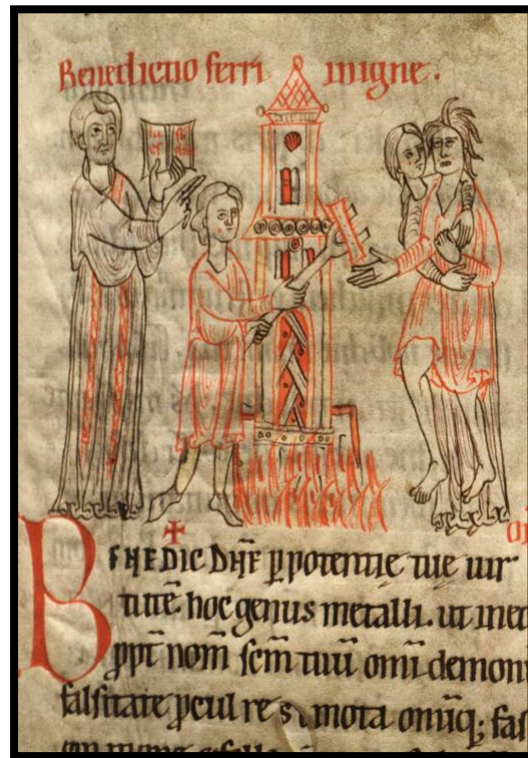 Benedictio ferri in igne.
BENEDIC DN̄E ꝑ potentie tue uir
tutē hoc genus metalli. ut in eo
ꝓpt̄ nom̄ scm̄ tuū omī demoni
falsitate ꝓcul re mota omīq; faſ